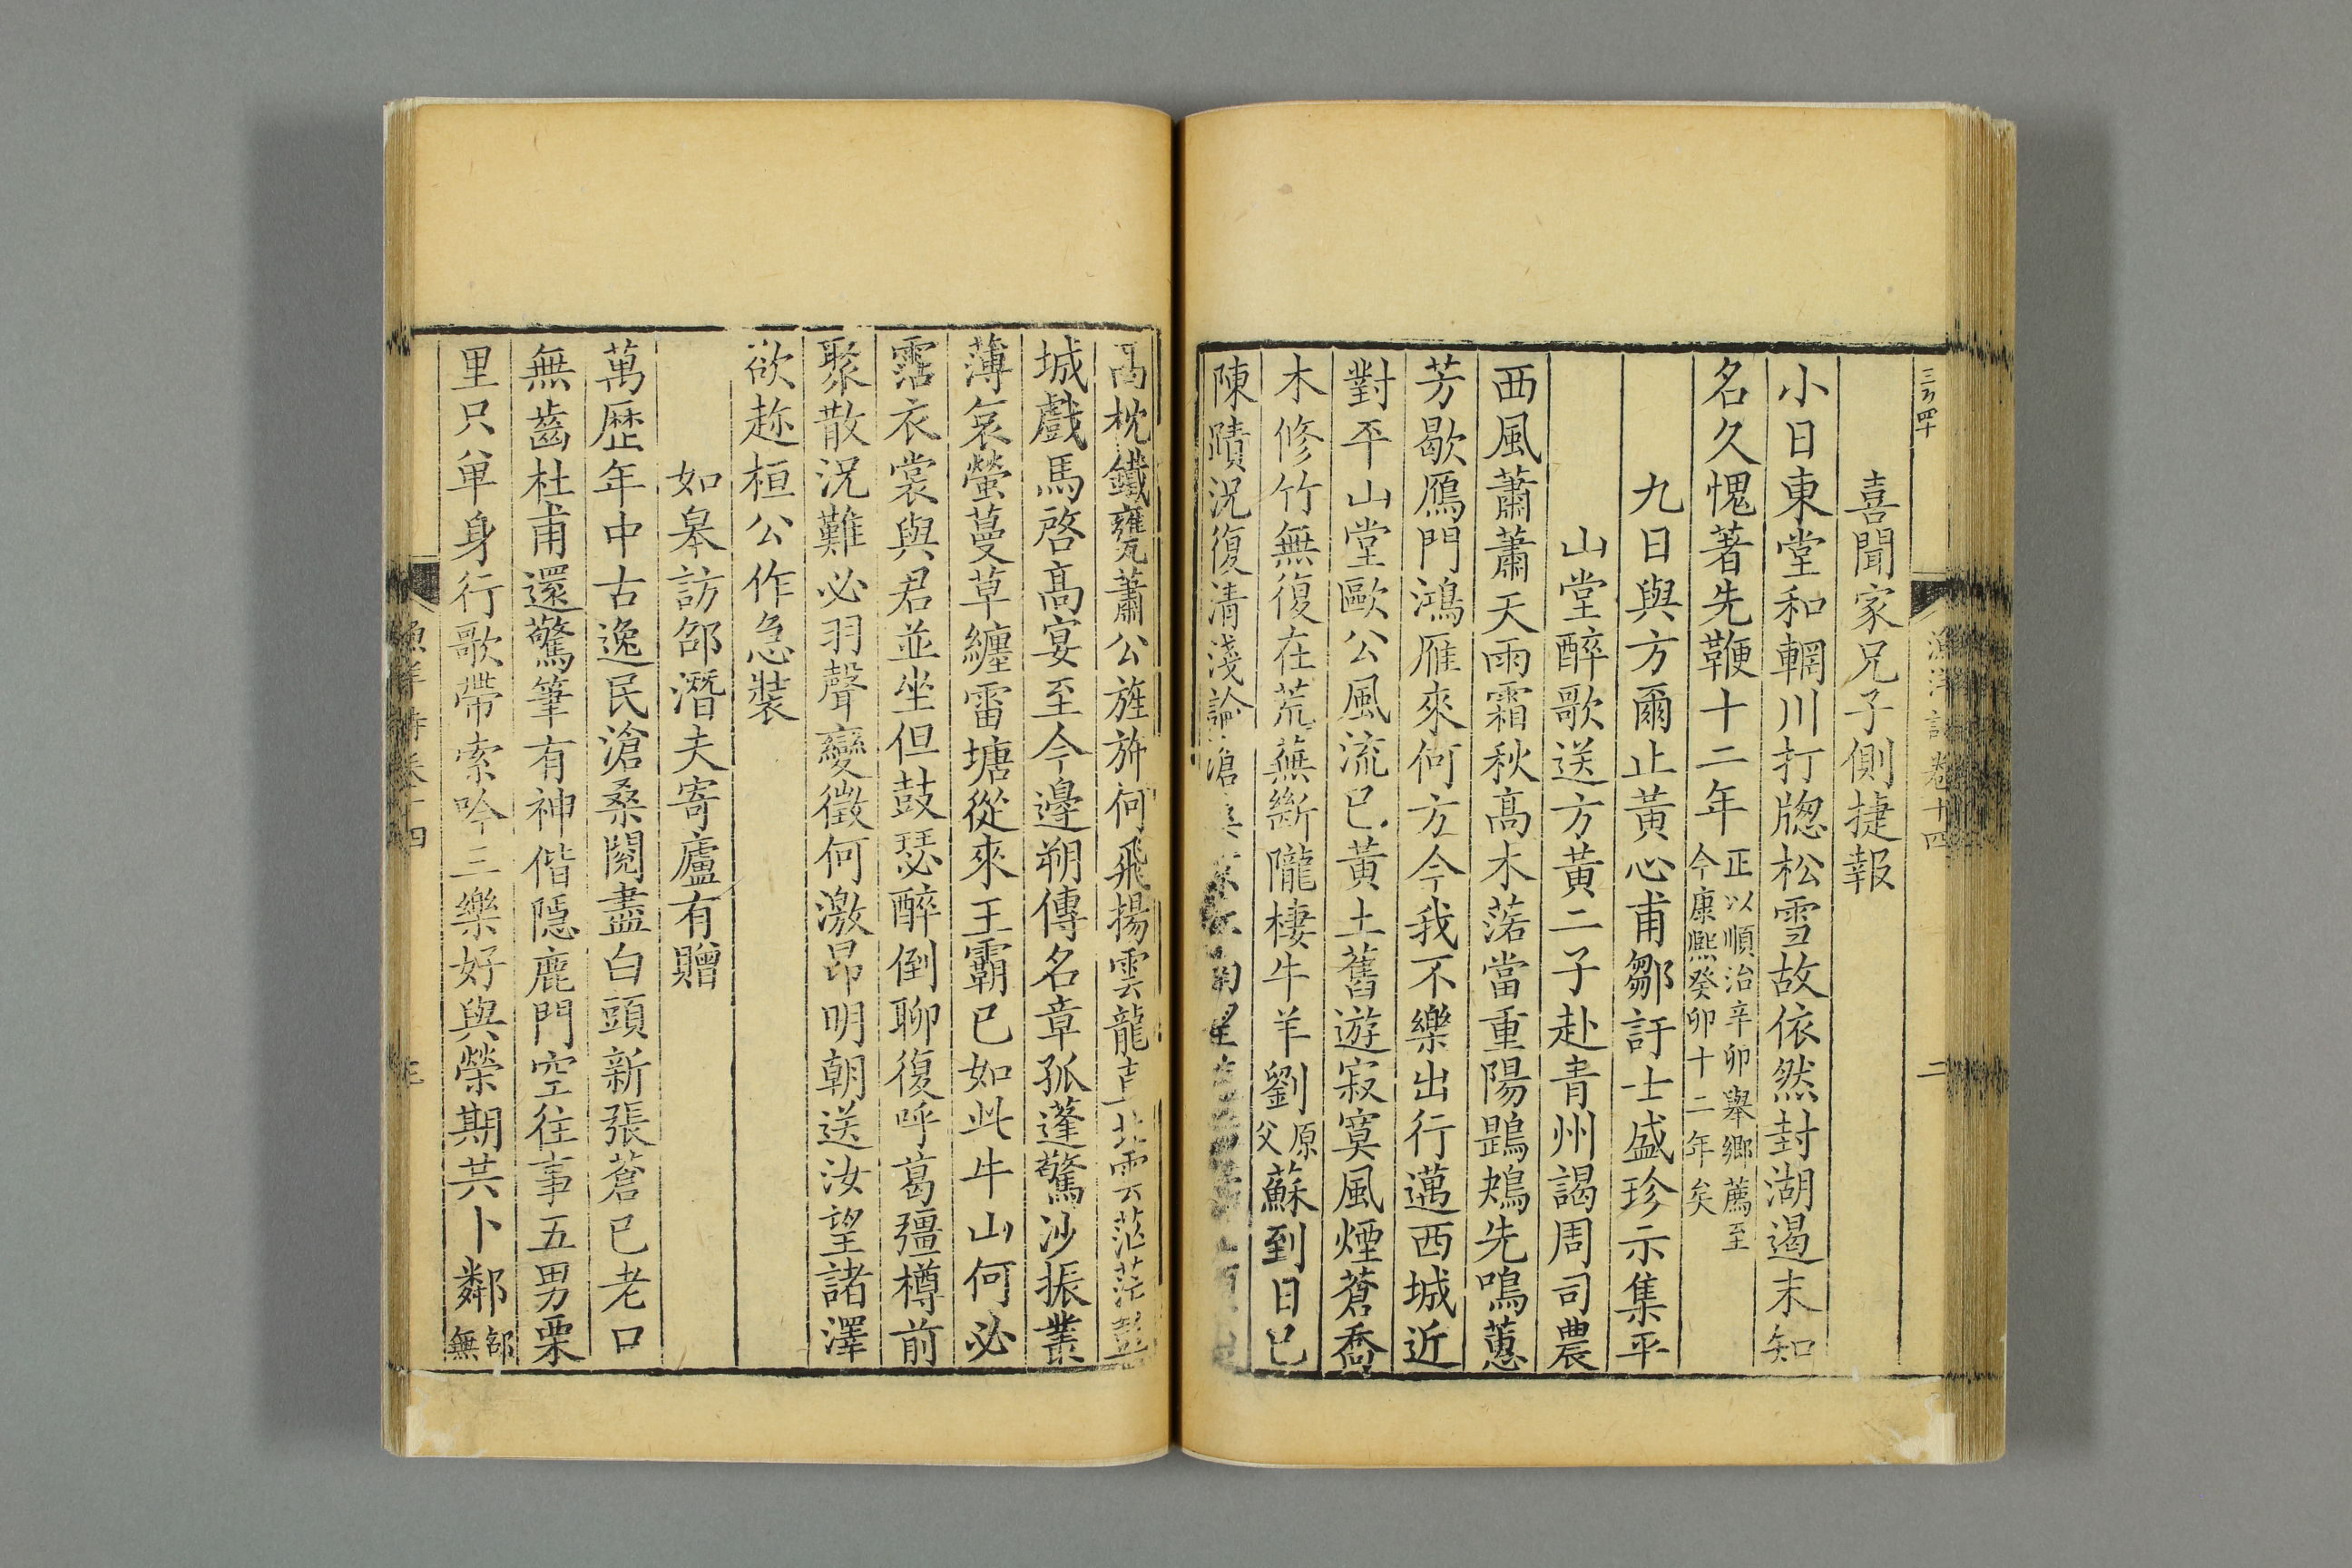 三百四十
漁洋詩卷十四 二
喜聞家兄子側捷報
小日東堂和輞川打牕松雪故依然封湖遏末知
名久愧著先鞭十二年正以順治辛卯舉鄉薦至
今康熙癸卯十二年矣
九日與方爾止黃心甫鄒訏士盛珍示集平
山堂醉歌送方黃二子赴青州謁周司農
西風蕭蕭天雨霜秋高木落當重陽鶗鴂先鳴蕙
芳歇鴈門鴻雁來何方今我不樂出行邁西城近
對平山堂歐公風流已黃土舊遊寂寞風煙蒼喬
木修竹無復在荒蕪斷隴棲牛羊劉原父蘇到日已
陳蹟況復清淺論滄
高枕鐵甕蕭公旌旂何飛揚雲龍
北雲茫茫彭
城戲馬啓高宴至今邊朔傳名章孤蓬驚沙振叢
薄哀螢蔓草纏雷塘從來王霸已如此牛山何必
霑衣裳與君並坐但鼓瑟醉倒聊復呼葛彊樽前
聚散況難必羽聲變徵何激昂明朝送汝望諸澤
欲趂桓公作急裝
如皋訪邵潛夫寄廬有贈
萬歷年中古逸民滄桑閱盡白頭新張蒼已老口
無齒杜甫還驚筆有神偕隱鹿門空往事五男栗
里只單身行歌帶索吟三樂好與榮期共卜鄰邵
無
漁洋詩卷十四 三